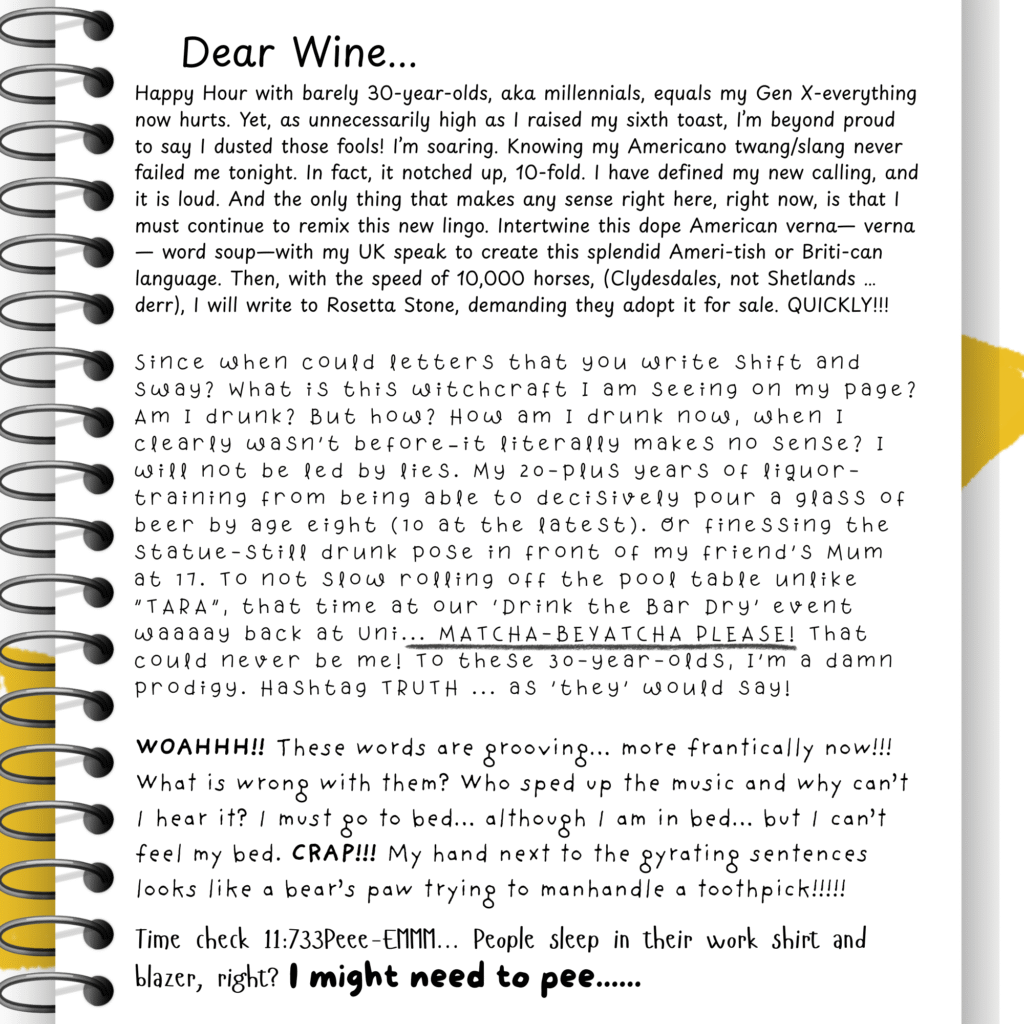 Dear Wine...
Happy Hour with barely 30-year-olds, aka millennials, equals my Gen X-everything
now hurts. Yet, as unnecessarily high as I raised my sixth toast, I'm beyond proud
to say I dusted those fools! I'm soaring. Knowing my Americano twang/slang never
failed me tonight. In fact, it notched up, 10-fold. I have defined my new calling, and
it is loud. And the only thing that makes any sense right here, right now, is that I
must continue to remix this new lingo. Intertwine this dope American verna— verna
— word soup—with my UK speak to create this splendid Ameri-tish or Briti-can
language. Then, with the speed of 10,000 horses, (Clydesdales, not Shetlands ...
derr), I will write to Rosetta Stone, demanding they adopt it for sale. QUICKLY!!!
Since when could letters that you write shift and
sway? What is this witchcraft I am seeing on my page?
Am I drunk? But how? How am I drunk now, when I
clearly wasn't before-it literally makes no sense? I
will not be led by lies. My 20-plus years of liquor-
training from being able to decisively pour a glass of
beer by age eight (10 at the latest). Or finessing the
statue-still drunk pose in front of my friend's Mum
at 17. To not slow rolling off the pool table unlike
"TARA", that time at our 'Drink the Bar Dry' event
waaaay back at Uni... MATCHA-BEYATCHA PLEASE! That
could never be me! To these 30-year-olds, I'm a damn
prodigy. Hashtag TRUTH ... as 'they' would say!
WOAHHH!! These words are grooving... more frantically now!!!
What is wrong with them? Who sped up the music and why can't
I hear it? I must go to bed... although I am in bed... but I can't
feel my bed. CRAP!!! My hand next to the gyrating sentences
looks like a bear's paw trying to manhandle a toothpick!!!!!
Time check 11:733Peee-EMMM... People sleep in their work shirt and
blazer, right? I might need to pee......